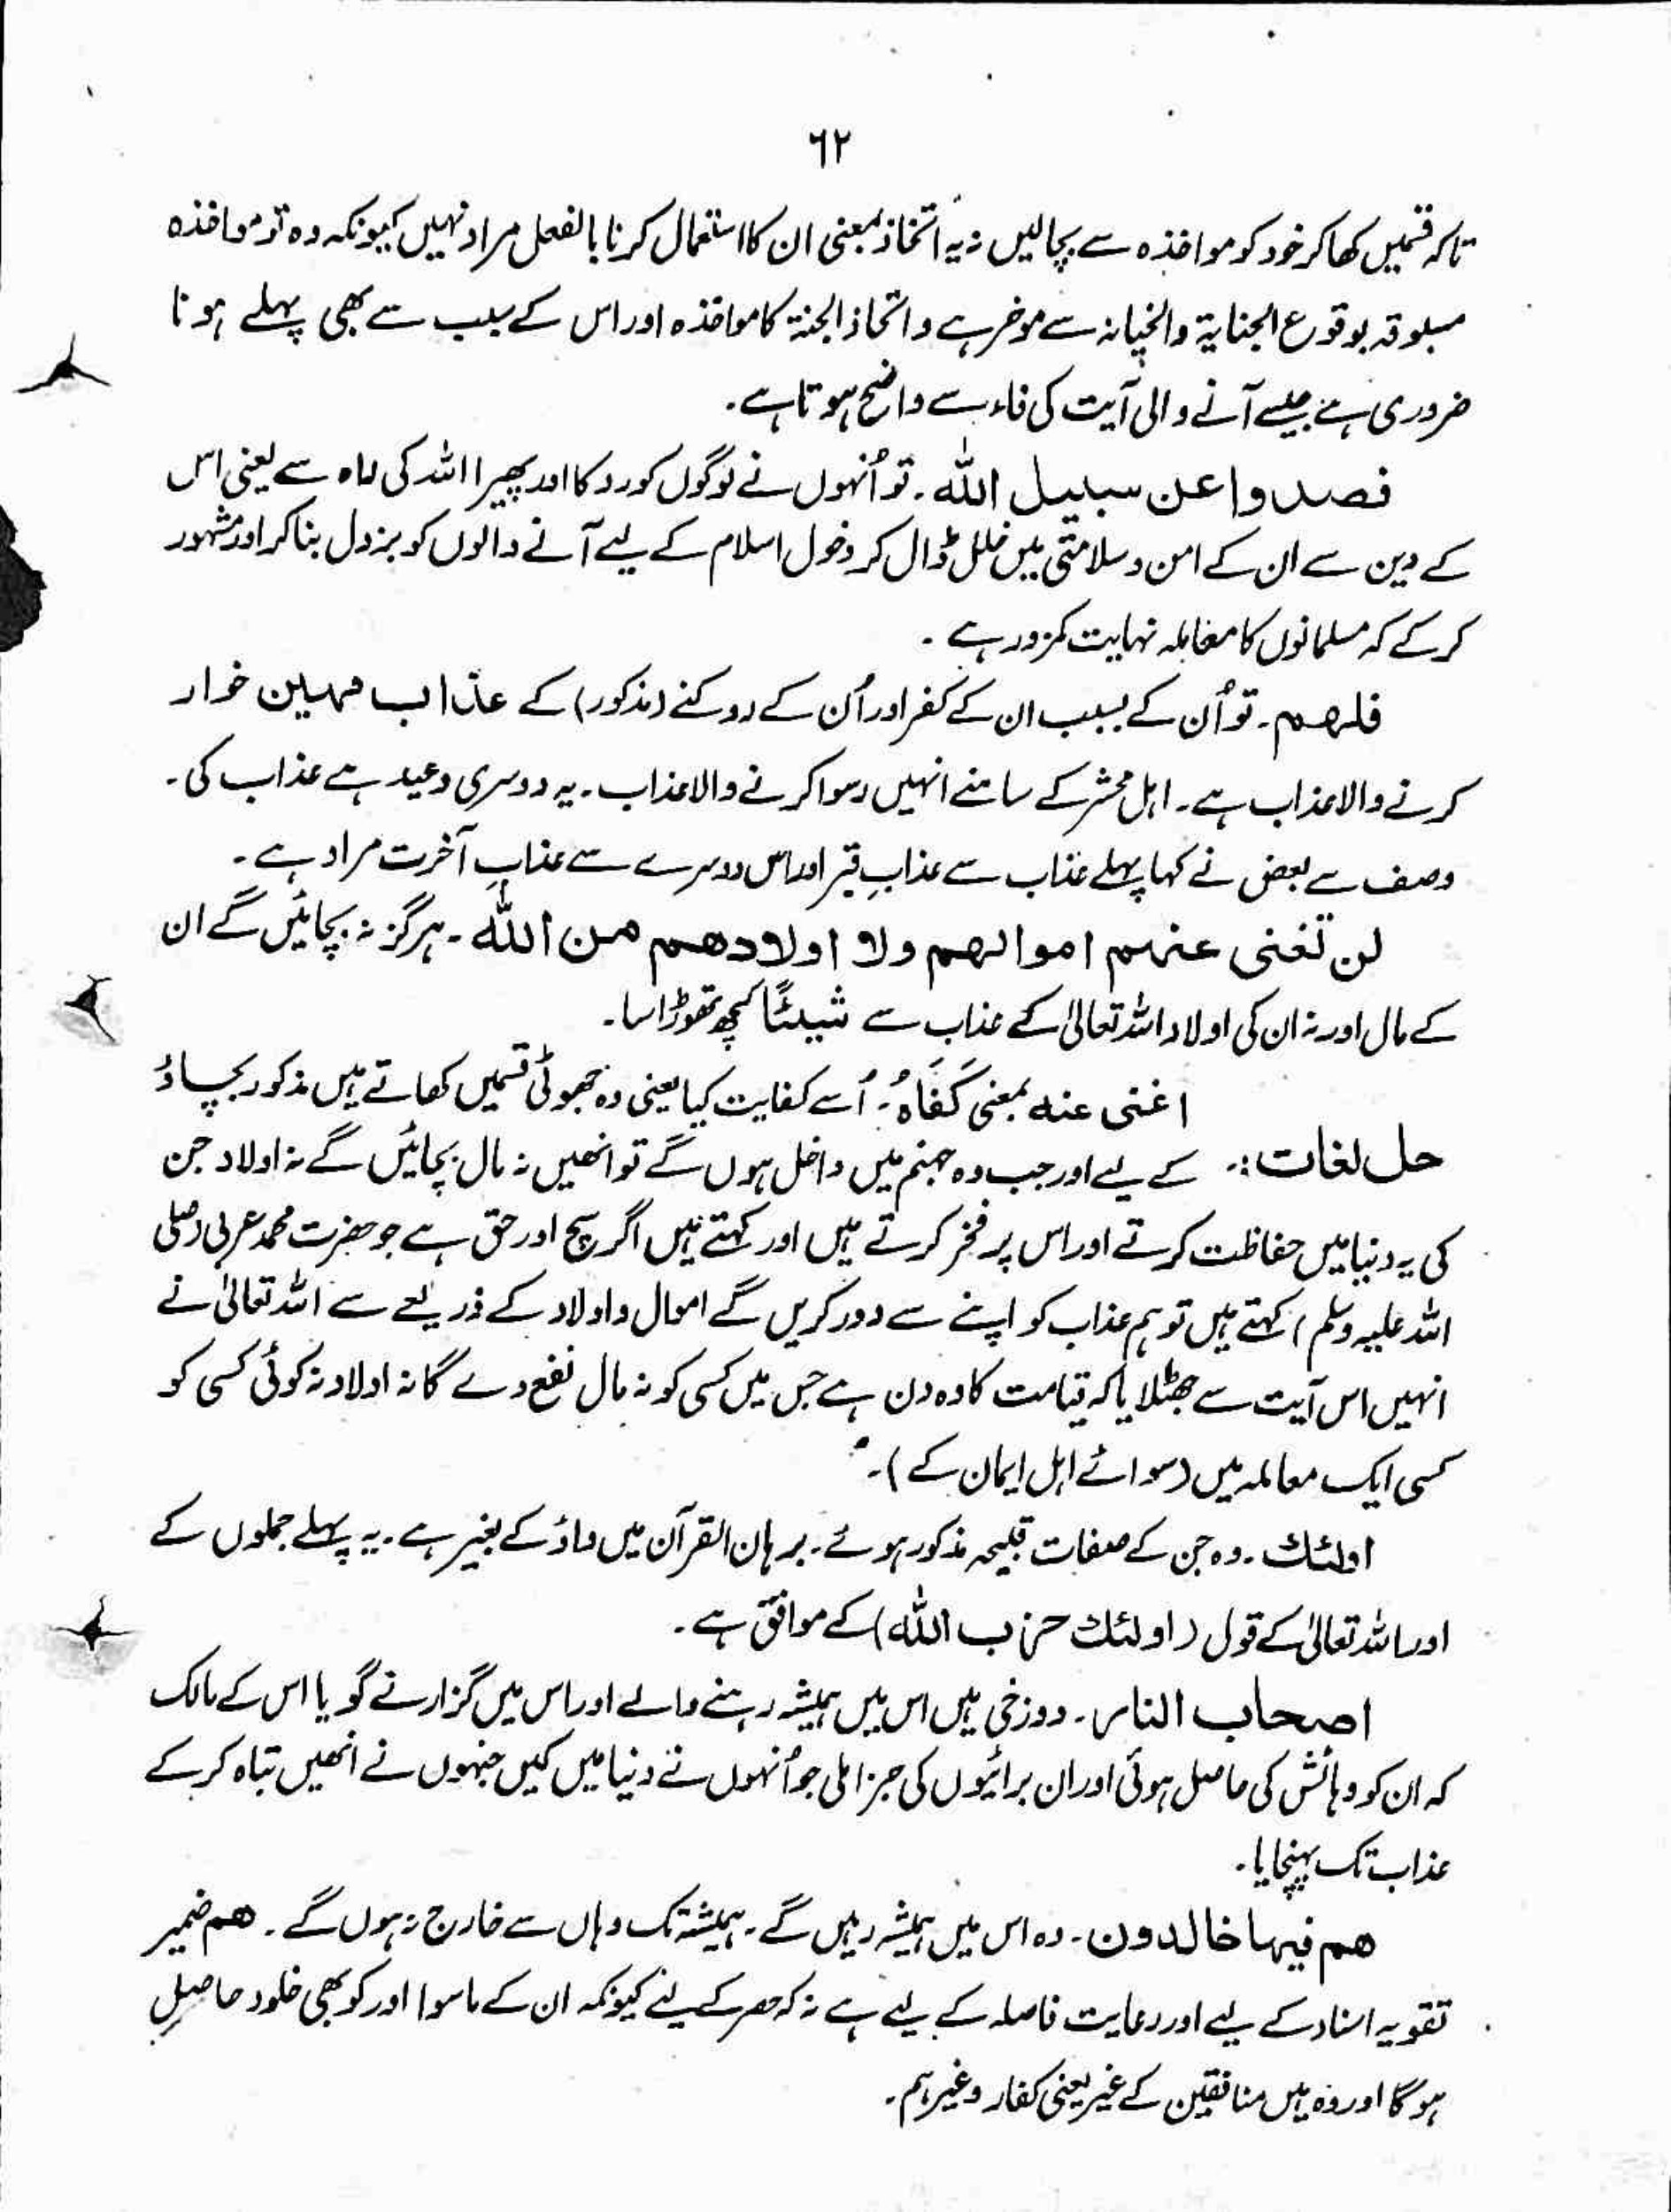 ٦٢
تاکہ قسمیں کھا کر خود کو مواخذہ سے بچالیں نہ یہ اتخاذ بمعنی ان کا استعمال کرنا بالفعل مراد نہیں کیونکہ وہ تو مواخذہ
مسبوقہ بوقوع الجنایۃ والخیانہ سے موخر ہے و اتخاذ الجنۃ کا مواخذہ اور اس کے سبب سے بھی پہلے ہونا
ضروری ہے جیسے آنے والی آیت کی فاء سے واضح ہوتا ہے۔
فصدوا عن سبیل اللہ ۔ تو اُنہوں نے لوگوں کو روکا اور پھیرا اللہ کی راہ سے یعنی اس
کے دین سے ان کے امن و سلامتی میں خلل ڈال کر دخول اسلام کے لیے آنے والوں کو بزدل بنا کر اور مشہور
کر کے کہ مسلمانوں کا معاملہ نہایت کمزور ہے ۔
فلہم ۔ تو اُن کے بسبب ان کے کفر اور اُن کے روکنے (مذکور) کے عذاب مہین خوار
کرنے والا عذاب ہے۔ اہل محشر کے سامنے انہیں رسوا کرنے والا عذاب ۔ یہ دوسری وعید ہے عذاب کی۔
وصف سے بعض نے کہا پہلے عذاب سے عذابِ قبر اور اس دوسرے سے عذابِ آخرت مراد ہے ۔
لن تغنی عنہم اموالہم ولا اولادھم من اللہ ۔ ہرگز نہ بچائیں گے ان
کے مال اور نہ ان کی اولاد اللہ تعالیٰ کے عذاب سے شیئًا کچھ تھوڑا سا۔
اغنی عنہ بمعنی کَفَاہُ ۔ اُسے کفایت کیا یعنی وہ جھوٹی قسمیں کھاتے ہیں مذکور بچاؤ
حل لغات :۔ کے لیے اور جب وہ جہنم میں داخل ہوں گے تو انھیں نہ مال بچائیں گے نہ اولاد جن
کی یہ دنیا میں حفاظت کرتے اور اس پر فخر کرتے ہیں اور کہتے ہیں اگر سچ اور حق ہے جو حضرت محمد عربی (صلی
اللہ علیہ وسلم) کہتے ہیں تو ہم عذاب کو اپنے سے دور کریں گے اموال و اولاد کے ذریعے سے اللہ تعالیٰ نے
انہیں اس آیت سے جھٹلایا کہ قیامت کا وہ دن ہے جس میں کسی کو نہ مال نفع دے گا نہ اولاد نہ کوئی کسی کو
کسی ایک معاملہ میں (سوائے اہل ایمان کے)۔
اولئک ۔ وہ جن کے صفات قبیحہ مذکور ہوئے۔ برہان القرآن میں واؤ کے بغیر ہے ۔ یہ پہلے جملوں کے
اور اللہ تعالیٰ کے قول (اولئک حزب اللہ) کے موافق ہے ۔
اصحاب النار ۔ دوزخی ہیں اس میں ہمیشہ رہنے والے اور اس میں گزارنے گویا اس کے مالک
کہ ان کو رہائش کی حاصل ہوئی اور ان برائیوں کی جزا ملی جو اُنہوں نے دنیا میں کیں جنہوں نے انھیں تباہ کر کے
عذاب تک پہنچایا۔
ھم فیہا خالدون ۔ وہ اس میں ہمیشہ رہیں گے ۔ ہمیشہ تک وہاں سے خارج نہ ہوں گے ۔ ھم ضمیر
تقویہ اسناد کے لیے اور رعایت فاصلہ کے لیے ہے نہ کہ حصر کے لیے کیونکہ ان کے ماسوا اور کو بھی خلود حاصل
ہوگا اور وہ ہیں منافقین کے غیر یعنی کفار وغیرہم۔